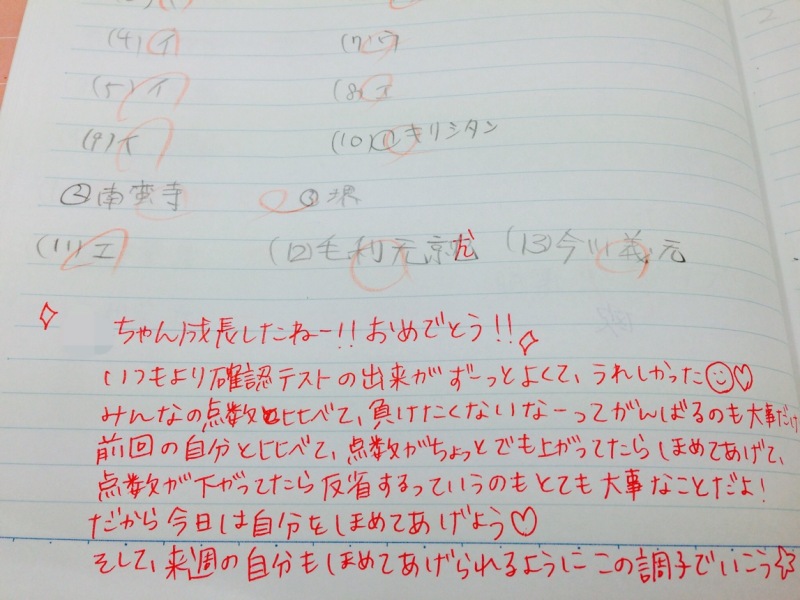 (4) イ (7) ウ
(5) イ (8) エ
(9) イ (10) ① キリシタン
② 南蛮寺 ③ 堺
(11) エ (12) 毛利元就 (13) 今川義元
ちゃん成長したねー!! おめでとう!!
いつもより確認テストの出来がずーっとよくて、うれしかった☺♡
みんなの点数と比べて、負けたくないなーってがんばるのも大事だけ
前回の自分と比べて、点数がちょっとでも上がってたらほめてあげて、
点数が下がってたら反省するっていうのもとても大事なことだよ!
だから今日は自分をほめてあげよう♡
そして、来週の自分もほめてあげられるようにこの調子でいこう☆